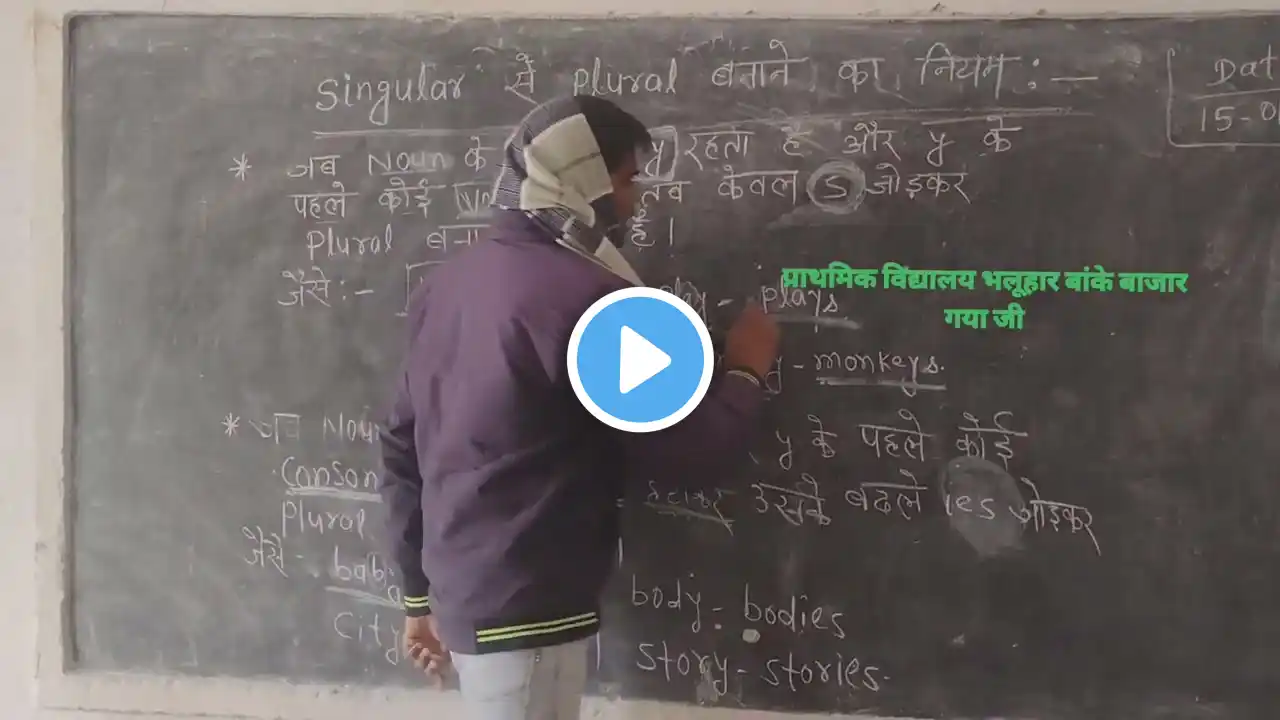 Singular से Plural बनाने का नियम :-
Dat
15-0
* जब Noun के y रहता है और y के
पहले कोई तब केवल S जोड़कर
Plural है।
जैसे :- play - plays
प्राथमिक विद्यालय भलूहार बांके बाजार
गया जी
y - monkeys.
* जब Noun y के पहले कोई
Conson
Plural हटाकर उसके बदले ies जोड़कर
जैसे - baby
body - bodies
City
Story - stories.